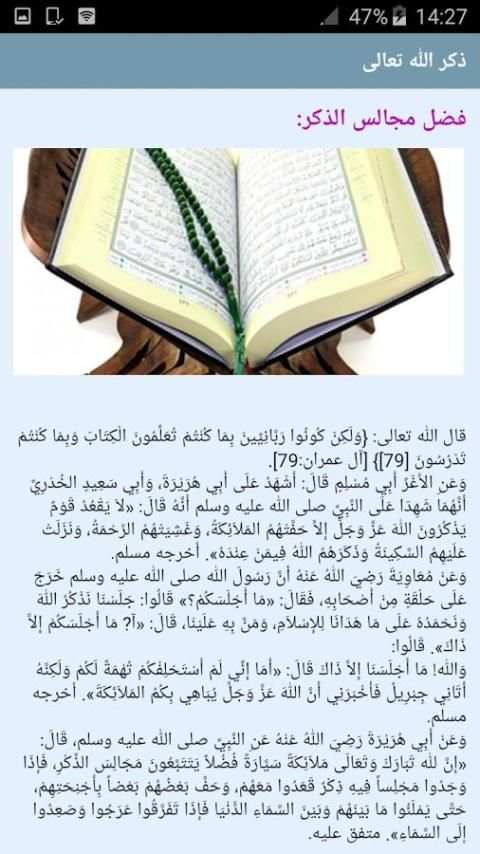 47% 14:27
ذكر الله تعالى
فضل مجالس الذكر:
قال الله تعالى: {وَلَكِنْ كُونُوا رَبَّانِيِّينَ بِمَا كُنْتُمْ تُعَلِّمُونَ الْكِتَابَ وَبِمَا كُنْتُمْ
تَدْرُسُونَ [79]} [آل عمران:79].
وَعَنِ الأَغَرِّ أَبِي مُسْلِمٍ قَالَ: أَشْهَدُ عَلَى أَبِي هُرَيْرَةَ، وَأَبِي سَعِيدٍ الخُدْرِيِّ
أَنَّهُمَا شَهِدَا عَلَى النَّبِيِّ صلى الله عليه وسلم أَنَّهُ قَالَ: «لاَ يَقْعُدُ قَوْمٌ
يَذْكُرُونَ اللهَ عَزَّ وَجَلَّ إلاَّ حَفَّتْهُمُ المَلاَئِكَةُ، وَغَشِيَتْهُمُ الرَّحْمَةُ، وَنَزَلَتْ
عَلَيْهِمُ السَّكِينَةُ وَذَكَرَهُمُ اللهُ فِيمَنْ عِنْدَهُ». أخرجه مسلم.
وَعَنْ مُعَاوِيَةَ رَضِيَ اللهُ عَنْهُ أنَّ رَسُولَ الله صلى الله عليه وسلم خَرَجَ
عَلَى حَلْقَةٍ مِنْ أَصْحَابِهِ، فَقَالَ: «مَا أَجْلَسَكُمْ؟» قَالُوا: جَلَسْنَا نَذْكُرُ اللهَ
وَنَحْمَدُهُ عَلَى مَا هَدَانَا لِلإِسْلاَمِ، وَمَنَّ بِهِ عَلَيْنَا، قَالَ: «آ? مَا أَجْلَسَكُمْ إلاَّ
ذَاكَ». قَالُوا:
وَالله! مَا أَجْلَسَنَا إلاَّ ذَاكَ قَالَ: «أمَا إنِّي لَمْ أسْتَحْلِفْكُمْ تُهْمَةً لَكُمْ وَلَكِنَّهُ
أتَانِي جِبرِيلُ فَأخْبَرَنِي أنَّ اللهَ عَزَّ وَجَلَّ يُبَاهِي بِكُمُ المَلاَئِكَةَ». أخرجه
مسلم.
وَعَنْ أبِي هُرَيْرَةَ رَضِيَ اللهُ عَنْهُ عَنِ النَّبِيِّ صلى الله عليه وسلم، قَالَ:
«إنَّ لله تَبَارَكَ وَتَعَالَى مَلاَئِكَةً سَيَّارَةً فُضُلاً يَتَتَبَّعُونَ مَجَالِسَ الذِّكْرِ، فَإذَا
وَجَدُوا مَجْلِساً فِيهِ ذِكْرٌ قَعَدُوا مَعَهُمْ، وَحَفَّ بَعْضُهُمْ بَعْضاً بِأجْنِحَتِهِمْ،
حَتَّى يَمْلَئُوا مَا بَيْنَهُمْ وَبَيْنَ السَّمَاءِ الدُّنْيَا فَإذَا تَفَرَّقُوا عَرَجُوا وَصَعِدُوا
إلَى السَّمَاءِ». متفق عليه.